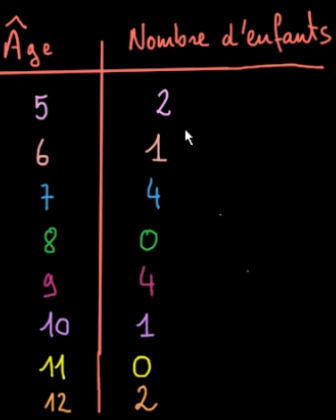 Âge Nombre d'enfants
5 2
6 1
7 4
8 0
9 4
10 1
11 0
12 2